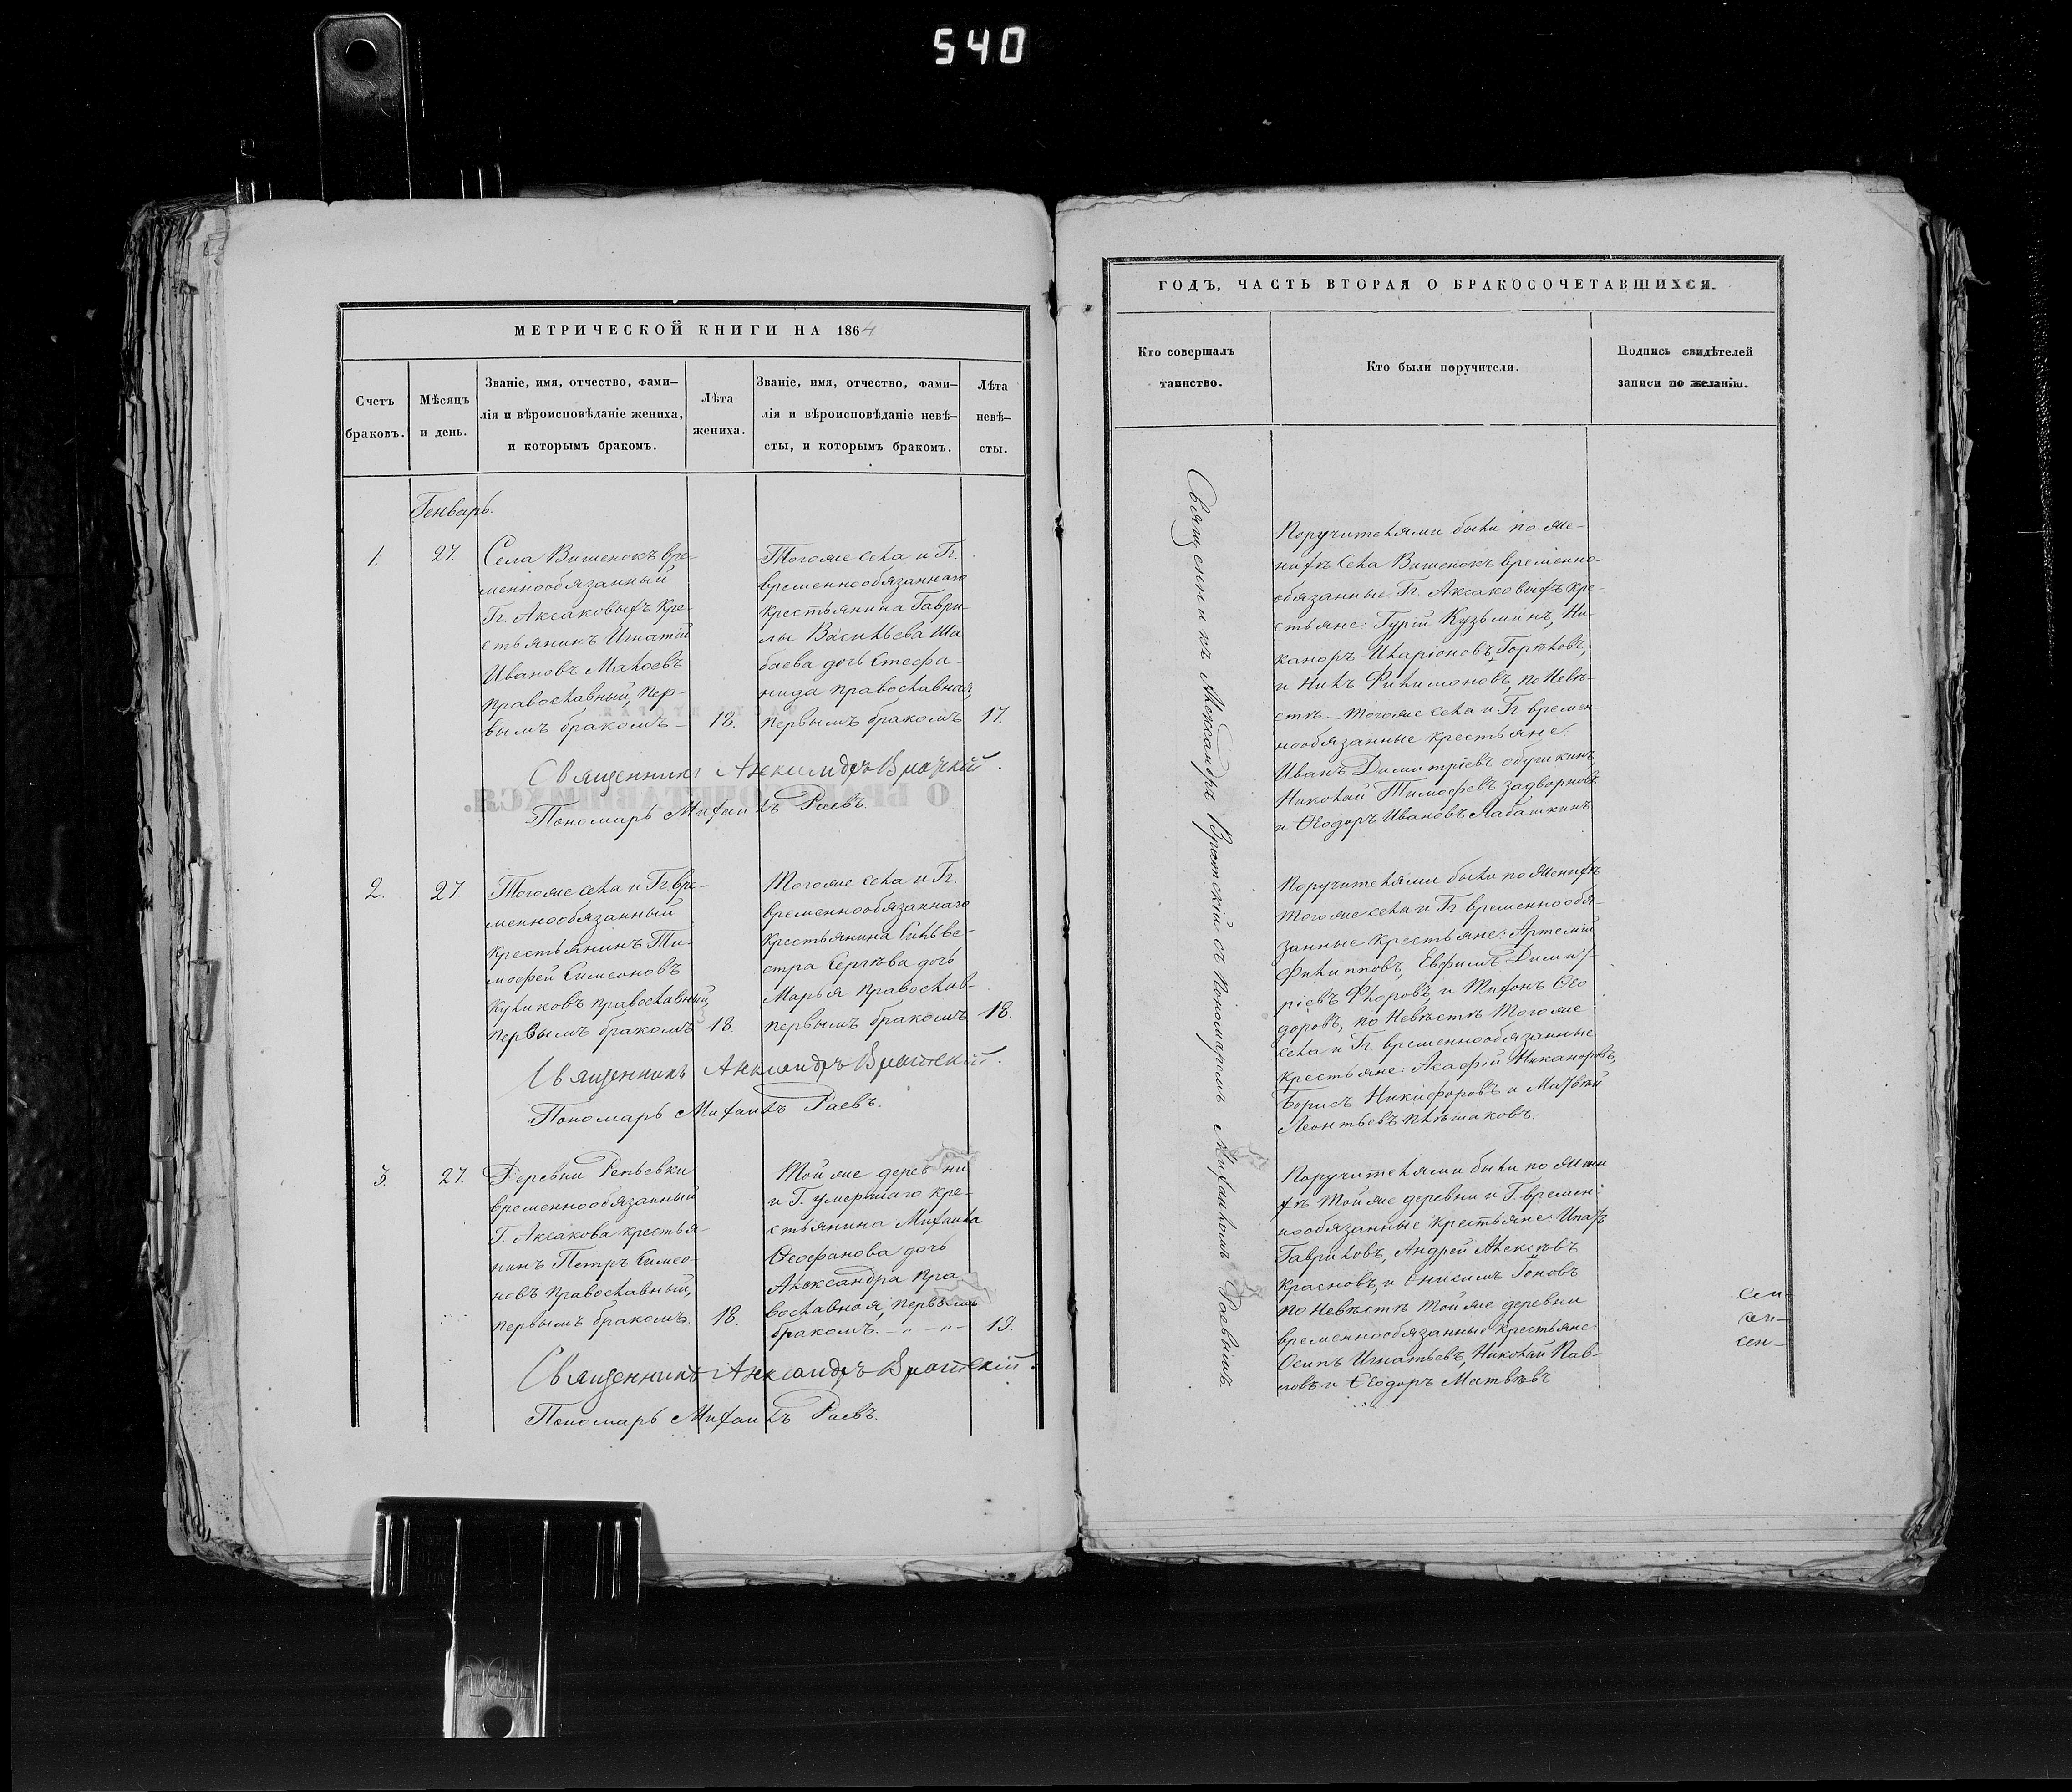 540
МЕТРИЧЕСКОЙ КНИГИ НА 1864
Счетъ
браковъ.
Мѣсяцъ
и день.
Званіе, имя, отчество, фами–
лія и вѣроисповѣданіе жениха,
и которымъ бракомъ.
Лѣта
жениха.
Званіе, имя, отчество, фами–
лія и вѣроисповѣданіе невѣ–
сты, и которымъ бракомъ.
Лѣта
невѣ–
сты.
Генварь.
1.
27.
Села Вишенокъ вре-
меннообязанный
Гг. Аксаковыхъ кре-
стьянинъ Игнатій
Ивановъ
православный, пер-
вымъ бракомъ –
18.
Тогоже села и Гг.
временнообязаннаго
крестьянина Гаври-
лы Васильева Ша
баева дочь Стефа-
нида православная,
первымъ бракомъ
17.
Священникъ Александръ Вратскій.
Пономарь Михаилъ Раевъ.
2.
27.
Тогоже села и Гг. вре-
меннообязанный
крестьянинъ Ти-
мофей Симеоновъ
Куликовъ православный,
первымъ бракомъ
18.
Тогоже села и Гг.
временнообязаннаго
крестьянина Сильве-
стра Сергѣева дочь
Марья православ-
первымъ бракомъ
18.
Священникъ Александръ Вратскій.
Пономарь Михаилъ Раевъ.
3.
27.
Деревни Репьевки
временнообязанный
Г. Аксакова крестья-
нинъ Петръ Симео-
новъ православный,
первымъ бракомъ.
18.
Тойже деревни
и Г. умершаго кре-
стьянина Михаила
Ѳеофанова дочь
Александра пра-
вославная, первымъ
бракомъ. – „ – „ –
19.
Священникъ Александръ Вратскій.
Пономарь Михаилъ Раевъ.
ГОДЪ, ЧАСТЬ ВТОРАЯ О БРАКОСОЧЕТАВШИХСЯ.
Кто совершалъ
таинство.
Кто были поручители.
Подпись свидѣтелей
записи по желанію.
Священникъ Александръ Вратскій съ Пономаремъ Михаиломъ Раевымъ.
Поручителями были по же-
нихѣ Села Вишенокъ временно-
обязанные Гг. Аксаковыхъ кре-
стьяне: Гурій Кузьминъ, Ни-
каноръ Иларіоновъ Горѣловъ,
и Нилъ Филимоновъ, по Невѣ-
стѣ – Тогоже села и Гг времен-
нообязанные крестьяне:
Иванъ Димитріевъ Обушкинъ
Николай Тимофеевъ Задворновъ
и Ѳеодоръ Ивановъ Лабашкинъ
Поручителями были по Женихѣ
Тогоже села и Гг временнообя-
занные крестьяне: Артемій
Филипповъ, Евфимъ Димит-
ріевъ Флоровъ, и Тихонъ Ѳео
доровъ, по Невѣстѣ Тогоже
села и Гг. временнообязанные
крестьяне: Асафій Никаноровъ,
Борисъ Никифоровъ и Матвѣй
Леонтьевъ
Поручителями были по Жени
хѣ Тойже деревни и Г. времен-
нообязанные крестьяне: Ипатъ
Гавриловъ, Андрей Алексѣевъ
Красновъ, и Онисимъ Іоновъ
по Невѣстѣ Тойже деревни
временнообязанные крестьяне:
Осипъ Игнатьевъ, Николай Пав-
ловъ и Ѳеодоръ Матвѣевъ